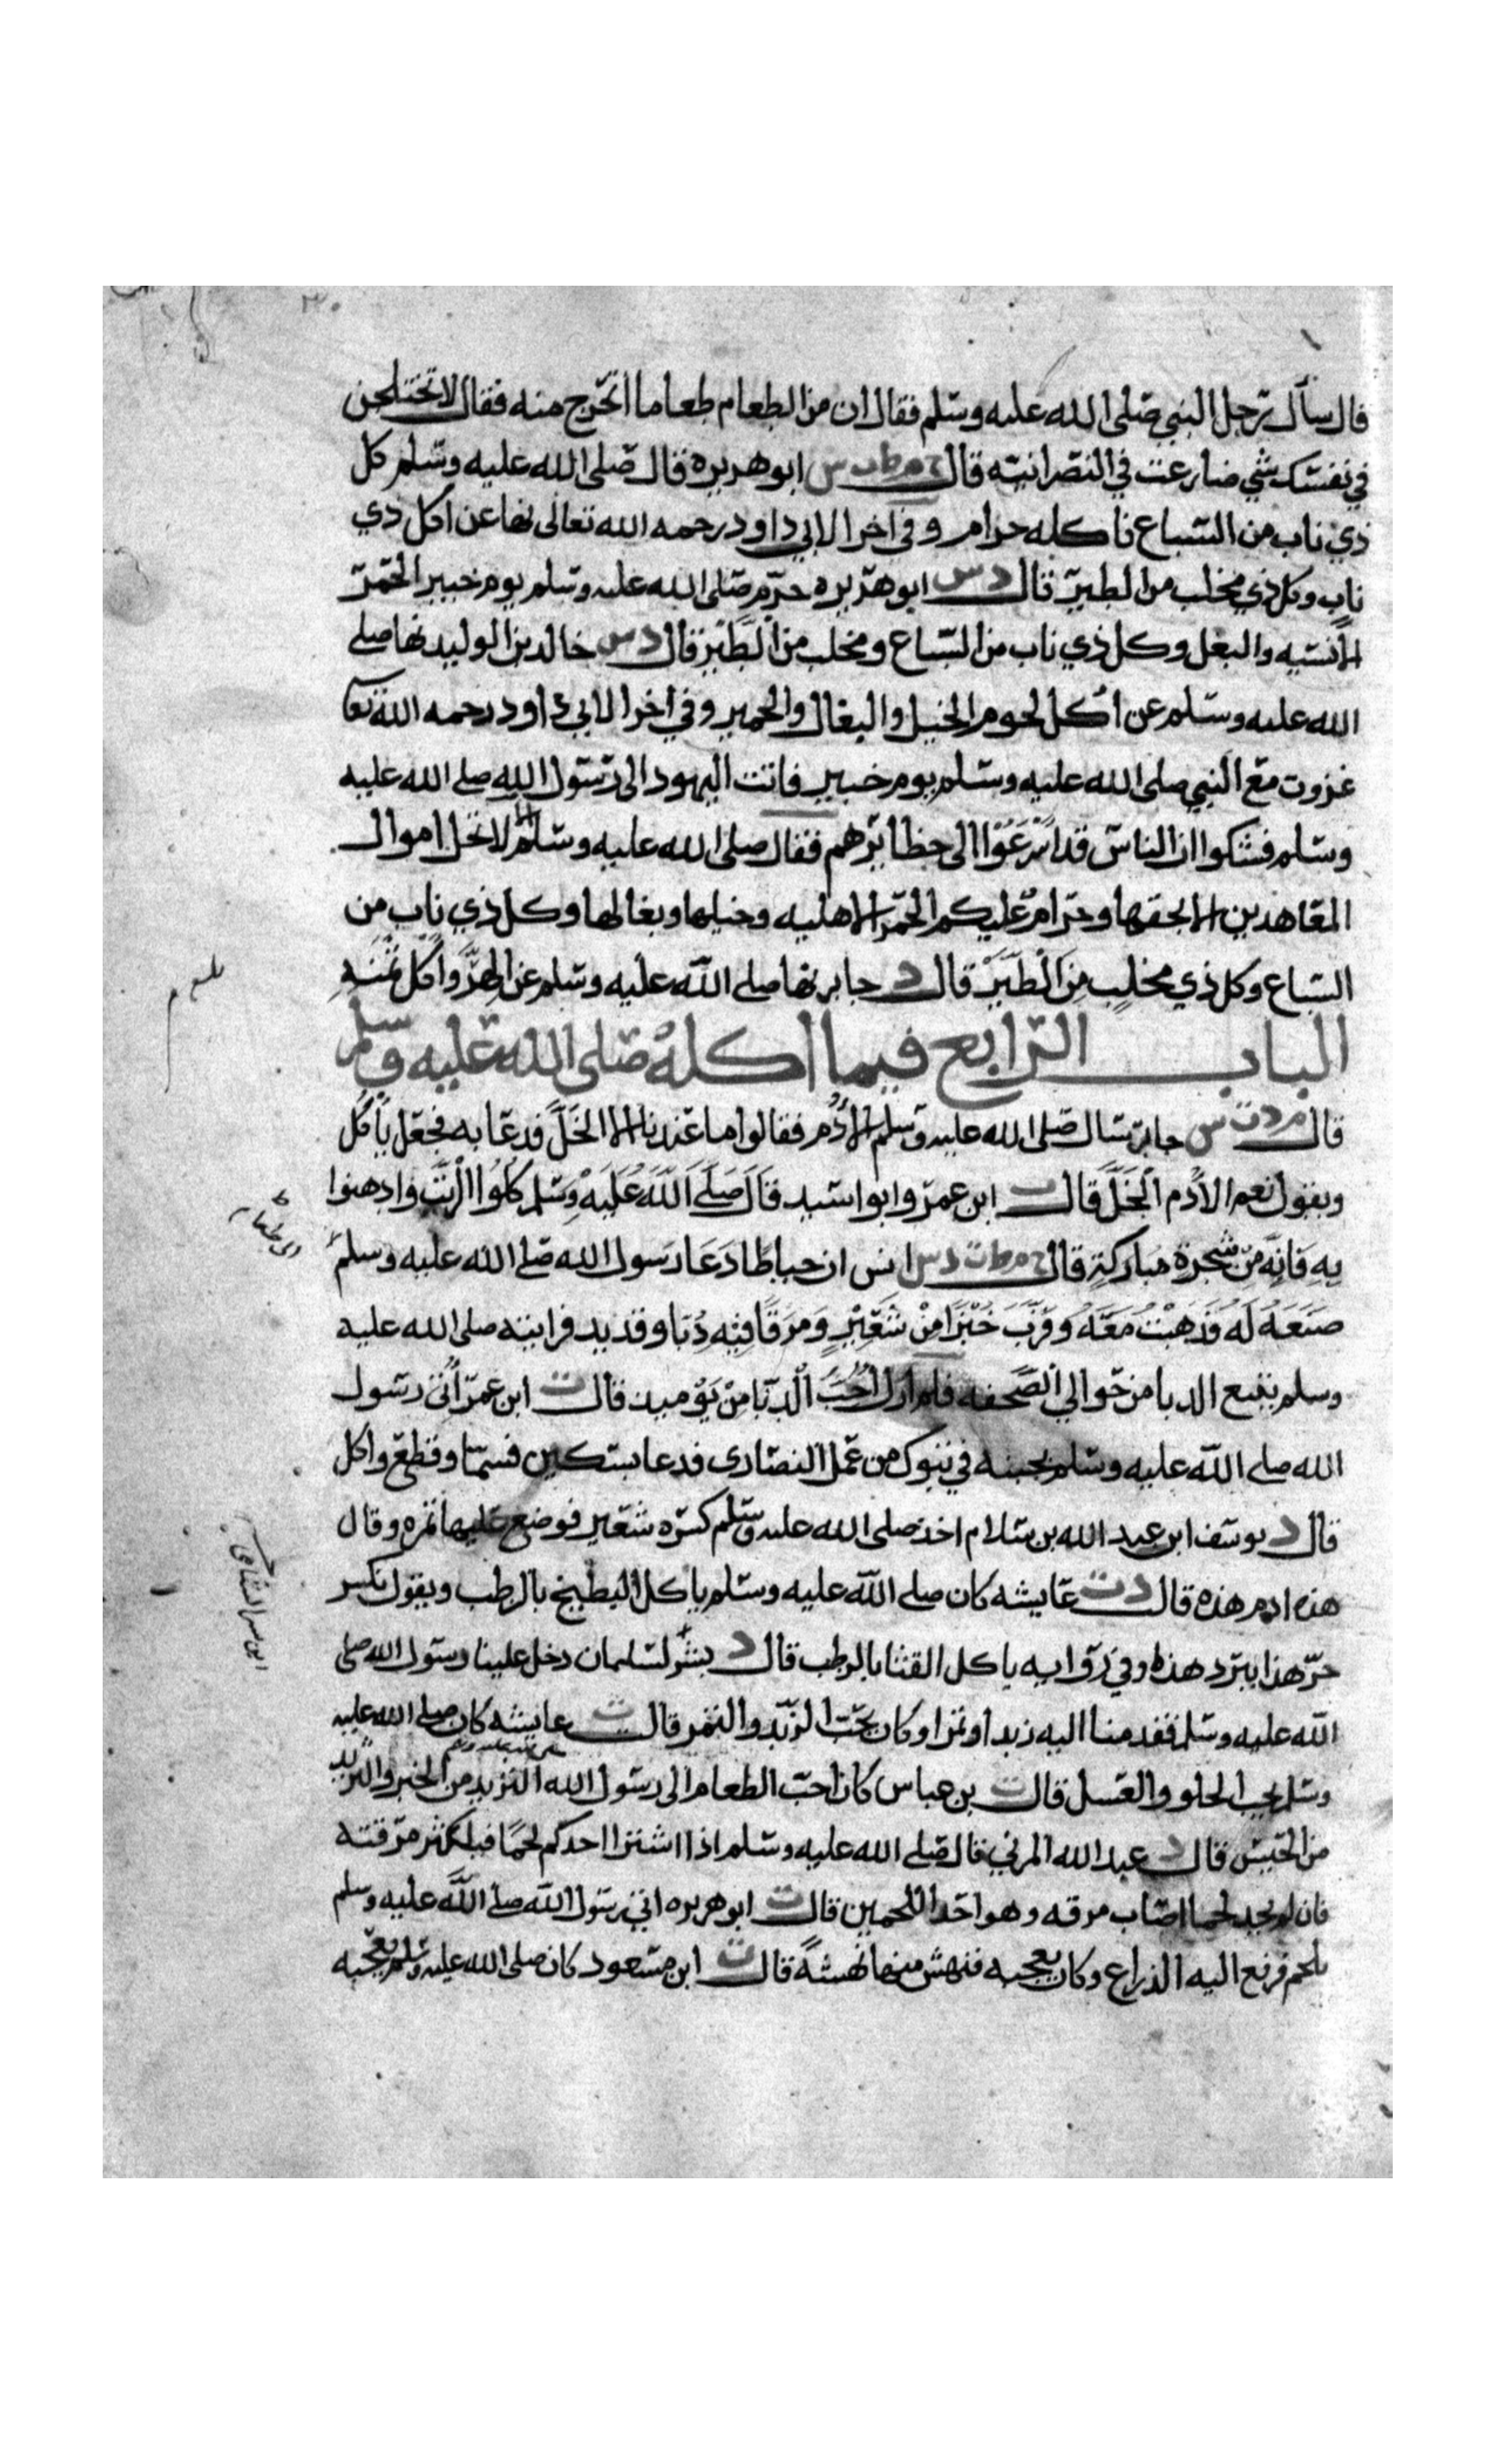 قال سأل رجل النبي صلى الله عليه وسلم فقال ان من الطعام طعاما اتحرج منه فقال لا تختلجن
في نفسك شي ضارعت في النصرانيه قال خ م ط د ت س ابو هريره قال صلى الله عليه وسلم كل
ذي ناب من السباع فاكله حرام وفي اخرا لابي داود رحمه الله تعالى نها عن اكل ذي
ناب وكل ذي مخلب من الطير قال د س ابو هريره حرم صلى الله عليه وسلم يوم خيبر الحمر
الانسيه والبغل وكل ذي ناب من السباع ومخلب من الطير قال د س خالد بن الوليد نها صلى
الله عليه وسلم عن اكل لحوم الخيل والبغال والحمير وفي اخرا لابي داود رحمه الله تعا
غزوت مع النبي صلى الله عليه وسلم يوم خيبر فاتت اليهود الى رسول الله صلى الله عليه
وسلم فشكوا ان الناس قد اسرعوا الى حظايرهم فقال صلى الله عليه وسلم لا تحل اموال
المعاهدين الا بحقها وحرام عليكم الحمر الاهليه وخيلها وبغالها وكل ذي ناب من
السباع وكل ذي مخلب من الطير قال د جابر نها صلى الله عليه وسلم عن الهر واكل ثمنه
الباب الرابع فيما اكله صلى الله عليه وسلم
قال م د ت س جابر سال صلى الله عليه وسلم الادم فقالوا ما عندنا الا الخل فدعا به فجعل ياكل
ويقول نعم الادم الخل قال ت ابن عمر وابو اسيد قال صلى الله عليه وسلم كلوا الزيت وادهنوا
به فانه من شجرة مباركة قال خ م ط ت د س انس ان خياطا دعا رسول الله صلى الله عليه وسلم
لطعام
صنعه له فذهبت معه وقرب خبزا من شعير ومرقا فيه دبا وقديد فرايته صلى الله عليه
وسلم يتبع الدبا من حوالي الصحفه فلم ازل احب الدبا من يوميد قال ت ابن عمر اتي رسول
الله صلى الله عليه وسلم بجبنه في تبوك من عمل النصارى فدعا بسكين فسما وقطع واكل
قال د يوسف ابن عبد الله بن سلام اخذ صلى الله عليه وسلم كسره شعير فوضع عليها تمره وقال
هذه ادم هذه قال د ت عايشه كان صلى الله عليه وسلم ياكل البطيخ بالرطب ويقول تكسر
حر هذا ببرد هذا وفي روايه ياكل القثا بالرطب قال د بشر لسلمان دخل علينا رسول الله صلى
الله عليه وسلم فقدمنا اليه زبدا وتمرا وكان يحب الزبد والتمر قال ت عايشه كان صلى الله عليه
وسلم يحب الحلو والعسل قال ت بن عباس كان احب الطعام الى رسول الله صلى الله عليه وسلم الثريد من الخبز والثريد
من الحيس قال د عبد الله المزني قال صلى الله عليه وسلم اذا اشترا احدكم لحما فليكثر مرقته
فان لم يجد لحما اصاب مرقه وهو احد اللحمين قال ت ابو هريره اتي رسول الله صلى الله عليه وسلم
بلحم فرفع اليه الذراع وكان يعجبه فنهش منها نهشة قال ت ابن مسعود كان صلى الله عليه وسلم يعجبه